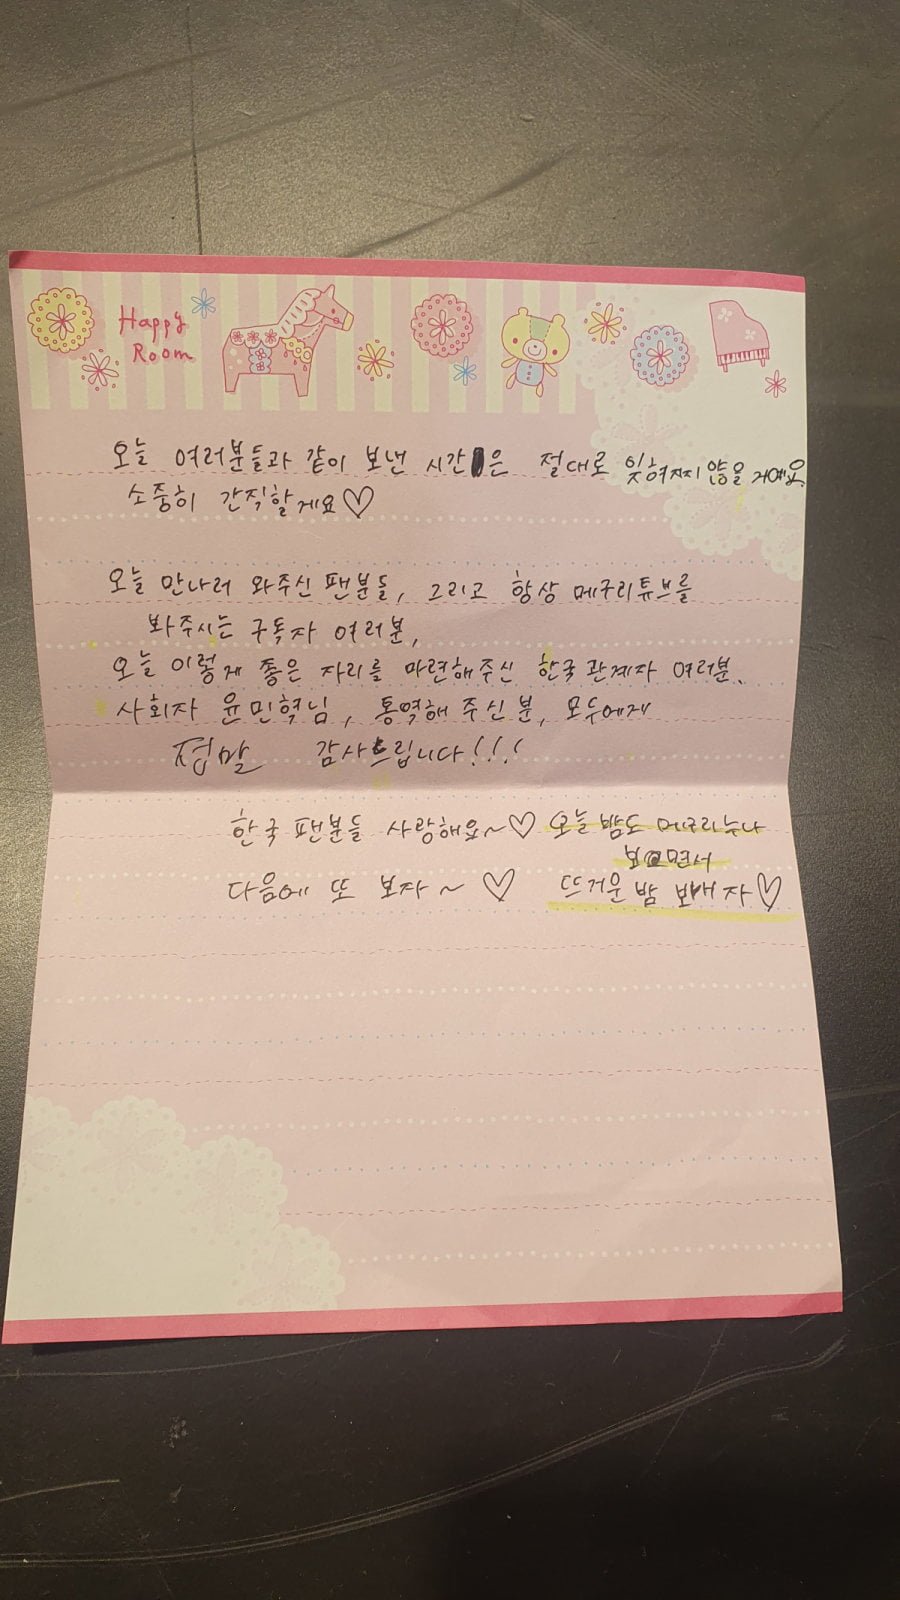 Happy
Room
오늘 여러분들과 같이 보낸 시간은 절대로 잊혀지지 않을 거예요.
소중히 간직할게요♡
오늘 만나러 와주신 팬분들, 그리고 항상 메구리튜브를
봐주시는 구독자 여러분,
오늘 이렇게 좋은 자리를 마련해주신 한국 관계자 여러분.
사회자 윤민혁님, 통역해 주신 분, 모두에게
정말 감사드립니다!!!
한국 팬분들 사랑해요~♡ 오늘 밤도 메구리누나
보면서
다음에 또 보자~ ♡ 뜨거운 밤 보내자♡